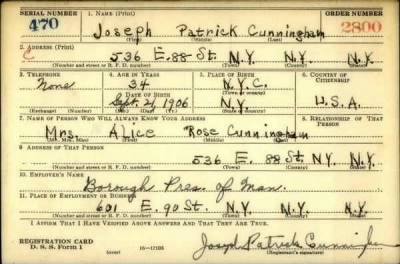 SERIAL NUMBER 1. NAME (Print) ORDER NUMBER
470 Joseph Patrick Cunningham 2800
(First) (Middle) (Last)
2. ADDRESS (Print)
C 536 E. 88 St. N.Y. N.Y. N.Y.
(Number and street or R. F. D. number) (Town) (County) (State)
3. TELEPHONE 4. AGE IN YEARS 5. PLACE OF BIRTH 6. COUNTRY OF CITIZENSHIP
None 34 N.Y.C.
DATE OF BIRTH (Town or county)
Sept. 21, 1906 N.Y. U.S.A.
(Exchange) (Number) (Mo.) (Day) (Yr.) (State or country)
7. NAME OF PERSON WHO WILL ALWAYS KNOW YOUR ADDRESS 8. RELATIONSHIP OF THAT PERSON
Mrs. Alice Rose Cunningham
(Mr., Mrs., Miss) (First) (Middle) (Last)
9. ADDRESS OF THAT PERSON
536 E. 88 St. NY NY. N.Y.
(Number and street or R. F. D. number) (Town) (County) (State)
10. EMPLOYER'S NAME
Borough Pres. of Man.
11. PLACE OF EMPLOYMENT OR BUSINESS
601 E. 90 St. N.Y. N.Y. N.Y.
(Number and street or R. F. D. number) (Town) (County) (State)
I AFFIRM THAT I HAVE VERIFIED ABOVE ANSWERS AND THAT THEY ARE TRUE.
REGISTRATION CARD
D. S. S. FORM 1 (over) 16—17105 Joseph Patrick
(Registrant's signature)